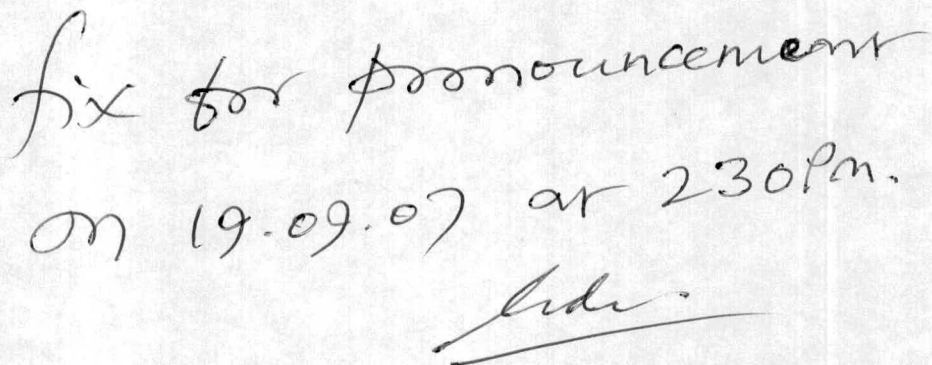 fix for pronouncement
on 19.09.07 at 230Pm.